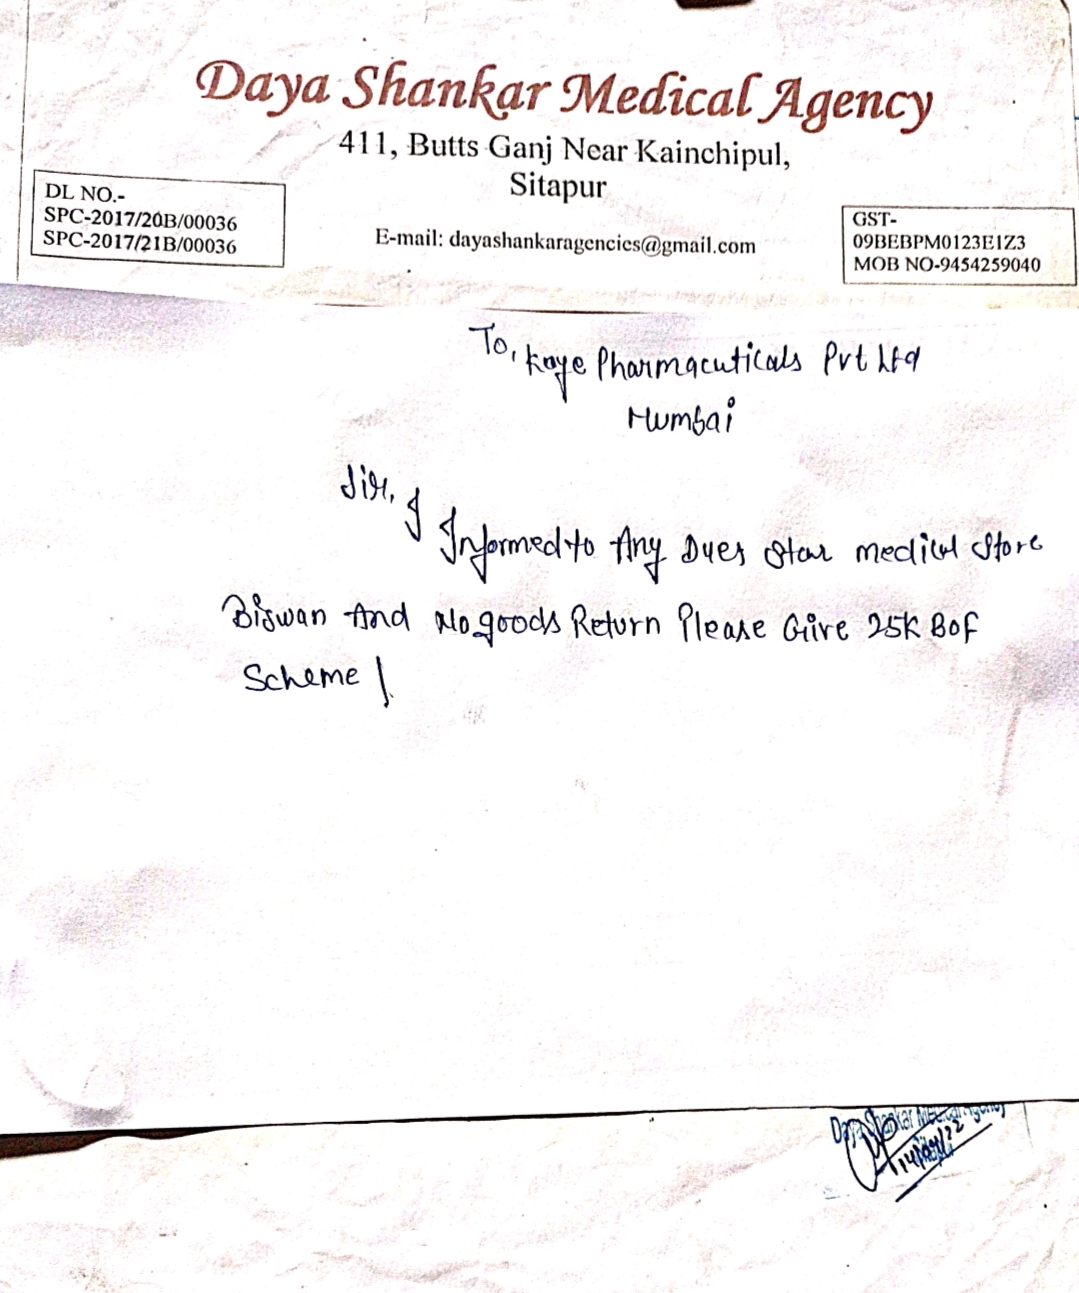 Daya Shankar Medical Agency
411, Butts Ganj Near Kainchipul,
Sitapur
DL NO.-
SPC-2017/20B/00036
SPC-2017/21B/00036
E-mail: dayashankaragencies@gmail.com
GST-
09BEBPM0123E1Z3
MOB NO-9454259040
To, Kaye Pharmacuticals Pvt Ltd
Mumbai
Sir,
I Informed to Any Dues Star medical Store
Biswan And No goods Return Please Give 25K BOF
Scheme
Daya Shankar Medical Agency